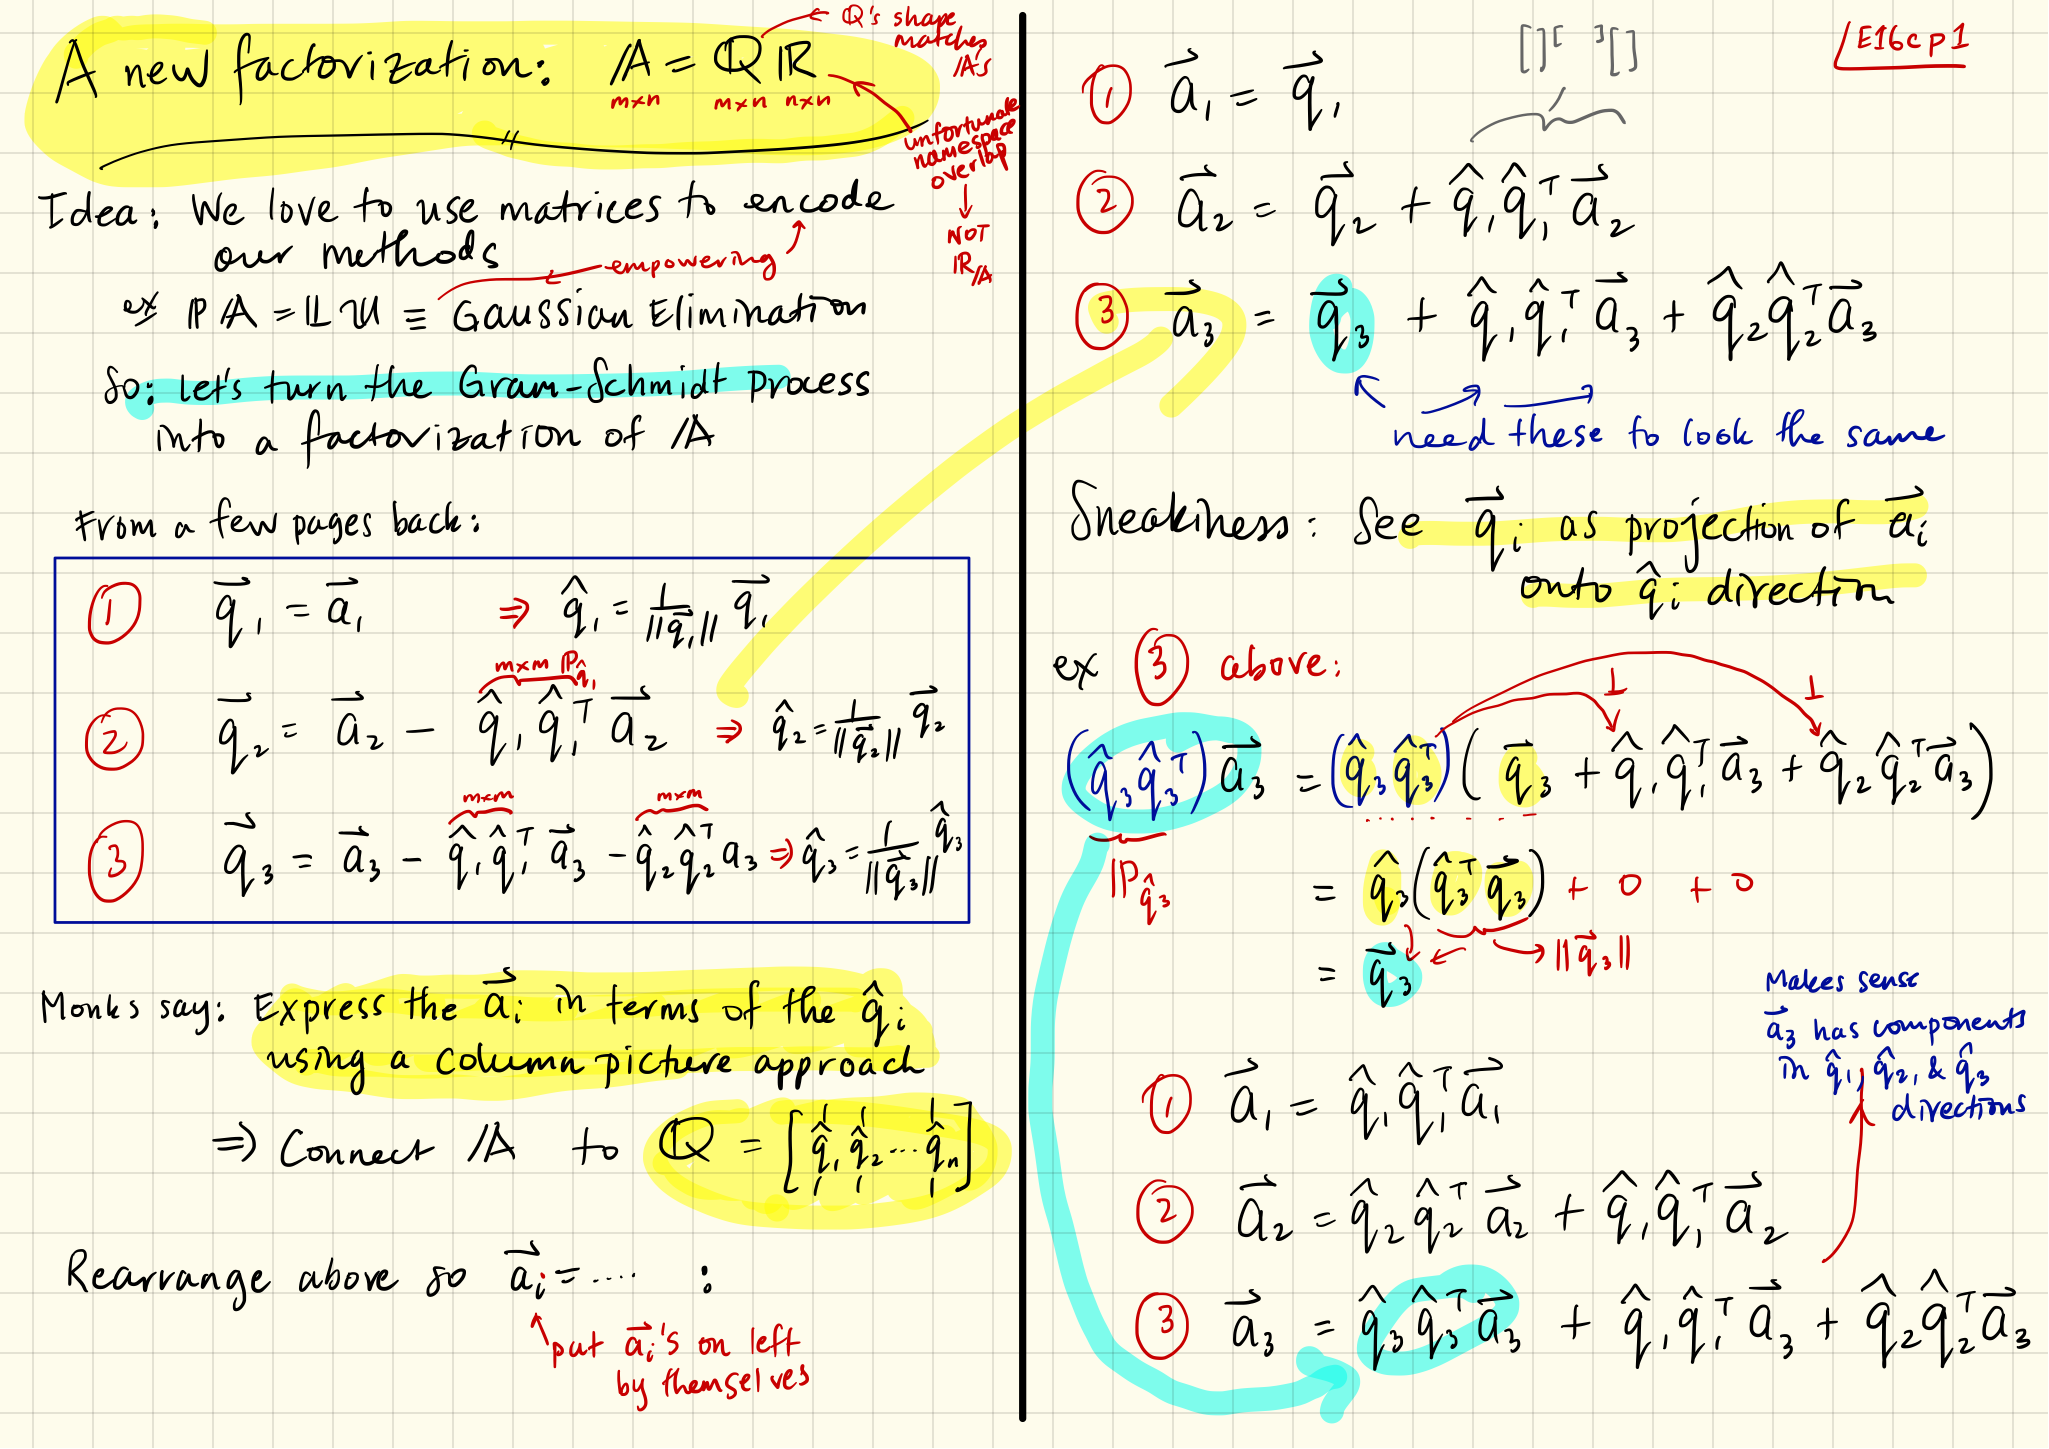 A new factorization: A = QR
m×n m×n n×n
← Q's shape
matches
A's
unfortunate
namespace
overlap
↓
NOT
R_A
Idea: We love to use matrices to encode
our methods
empowering
ex PA = LU ≡ Gaussian Elimination
So: let's turn the Gram-Schmidt Process
into a factorization of A
From a few pages back:
① q⃗₁ = a⃗₁ ⇒ q̂₁ = 1/||q⃗₁|| q⃗₁
m×m P_q̂₁
② q⃗₂ = a⃗₂ − q̂₁q̂₁ᵀa⃗₂ ⇒ q̂₂ = 1/||q⃗₂|| q⃗₂
m×m m×m
③ q⃗₃ = a⃗₃ − q̂₁q̂₁ᵀa⃗₃ − q̂₂q̂₂ᵀa₃ ⇒ q̂₃ = 1/||q⃗₃|| q̂₃
Monks say: Express the a⃗ᵢ in terms of the q̂ᵢ
using a column picture approach
⇒ Connect A to Q = [q̂₁ q̂₂ ... q̂ₙ]
Rearrange above so a⃗ᵢ = ..... :
put a⃗ᵢ's on left
by themselves
E16cp1
[ ] [ ] [ ]
① a⃗₁ = q⃗₁
② a⃗₂ = q⃗₂ + q̂₁q̂₁ᵀa⃗₂
③ a⃗₃ = q⃗₃ + q̂₁q̂₁ᵀa⃗₃ + q̂₂q̂₂ᵀa⃗₃
need these to look the same
Sneakiness: See q⃗ᵢ as projection of a⃗ᵢ
onto q̂ᵢ direction
ex ③ above:
⊥ ⊥
(q̂₃q̂₃ᵀ)a⃗₃ = (q̂₃q̂₃ᵀ)(q⃗₃ + q̂₁q̂₁ᵀa⃗₃ + q̂₂q̂₂ᵀa⃗₃)
P_q̂₃
= q̂₃(q̂₃ᵀq⃗₃) + 0 + 0
= q⃗₃
→ ||q⃗₃||
Makes sense
a⃗₃ has components
in q̂₁, q̂₂, & q̂₃
directions
① a⃗₁ = q̂₁q̂₁ᵀa⃗₁
② a⃗₂ = q̂₂q̂₂ᵀa⃗₂ + q̂₁q̂₁ᵀa⃗₂
③ a⃗₃ = q̂₃q̂₃ᵀa⃗₃ + q̂₁q̂₁ᵀa⃗₃ + q̂₂q̂₂ᵀa⃗₃